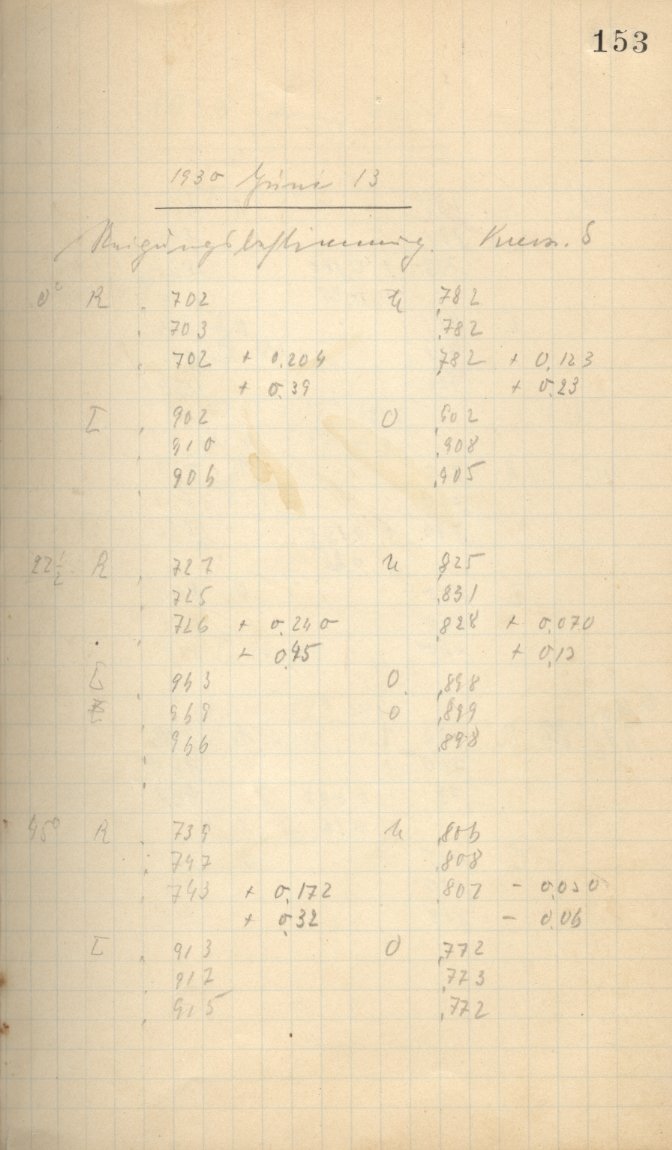 153
1930 Juni 13
Neigungsbestimmung. Kreuz. S
0° R . 702 U ,782
. 703 ,782
. 702 + 0,204 ,782 + 0,123
+ 0,39 + 0,23
L . 902 O ,902
. 910 ,908
. 906 ,905
22 1/2 R . 727 U ,825
. 725 ,831
. 726 + 0,240 ,828 + 0,070
+ 0,45 + 0,13
L . 963 O ,898
. 969 O ,899
. 966 ,898
45° R . 739 U ,806
. 747 ,808
. 743 + 0,172 ,807 - 0,030
+ 0,32 - 0,06
L . 913 O ,772
. 917 ,773
. 915 ,772